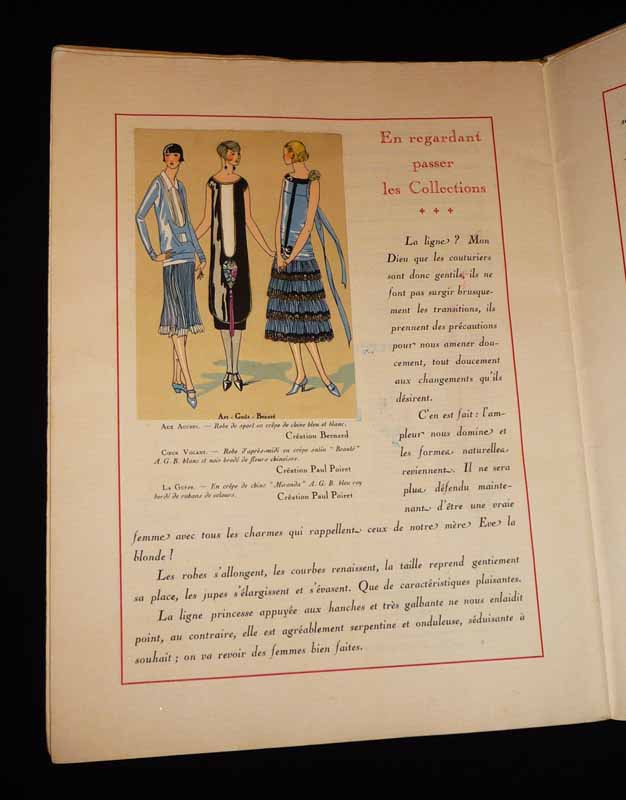 En regardant
passer
les Collections
La ligne ? Mon
Dieu que les couturiers
sont donc gentils, ils ne
font pas surgir brusque-
ment les transitions, ils
prennent des précautions
pour nous amener dou-
cement, tout doucement
aux changements qu'ils
désirent.
C'en est fait : l'am-
pleur nous domine et
les formes naturelles
reviennent. Il ne sera
plus défendu mainte-
nant d'être une vraie
femme avec tous les charmes qui rappellent ceux de notre mère Eve la
blonde !
Les robes s'allongent, les courbes renaissent, la taille reprend gentiement
sa place, les jupes s'élargissent et s'évasent. Que de caractéristiques plaisantes.
La ligne princesse appuyée aux hanches et très galbante ne nous enlaidit
point, au contraire, elle est agréablement serpentine et onduleuse, séduisante à
souhait ; on va revoir des femmes bien faites.
Art - Goût - Beauté
Aux Aguets. — Robe de sport en crêpe de chine bleu et blanc.
Création Bernard
Cœur Volant. — Robe d'après-midi en crêpe satin "Beauté"
A. G. B. blanc et noir brodé de fleurs chinoises.
Création Paul Poiret
La Guêpe. — En crêpe de chine "Miranda" A. G. B. bleu roy
bordé de rubans de velours. Création Paul Poiret